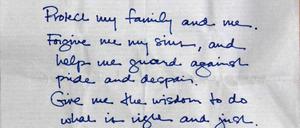 Protect my family and me.
Forgive me my sins, and
help me guard against
pride and despair.
Give me the wisdom to do
what is right and just.